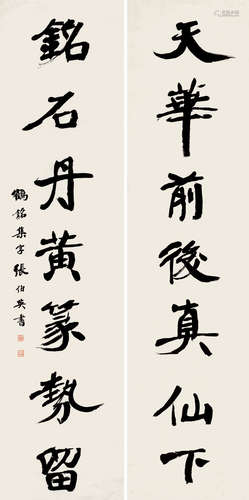 天華前後真仙下
銘石丹黃篆勢留
鶴銘集字張伯英書